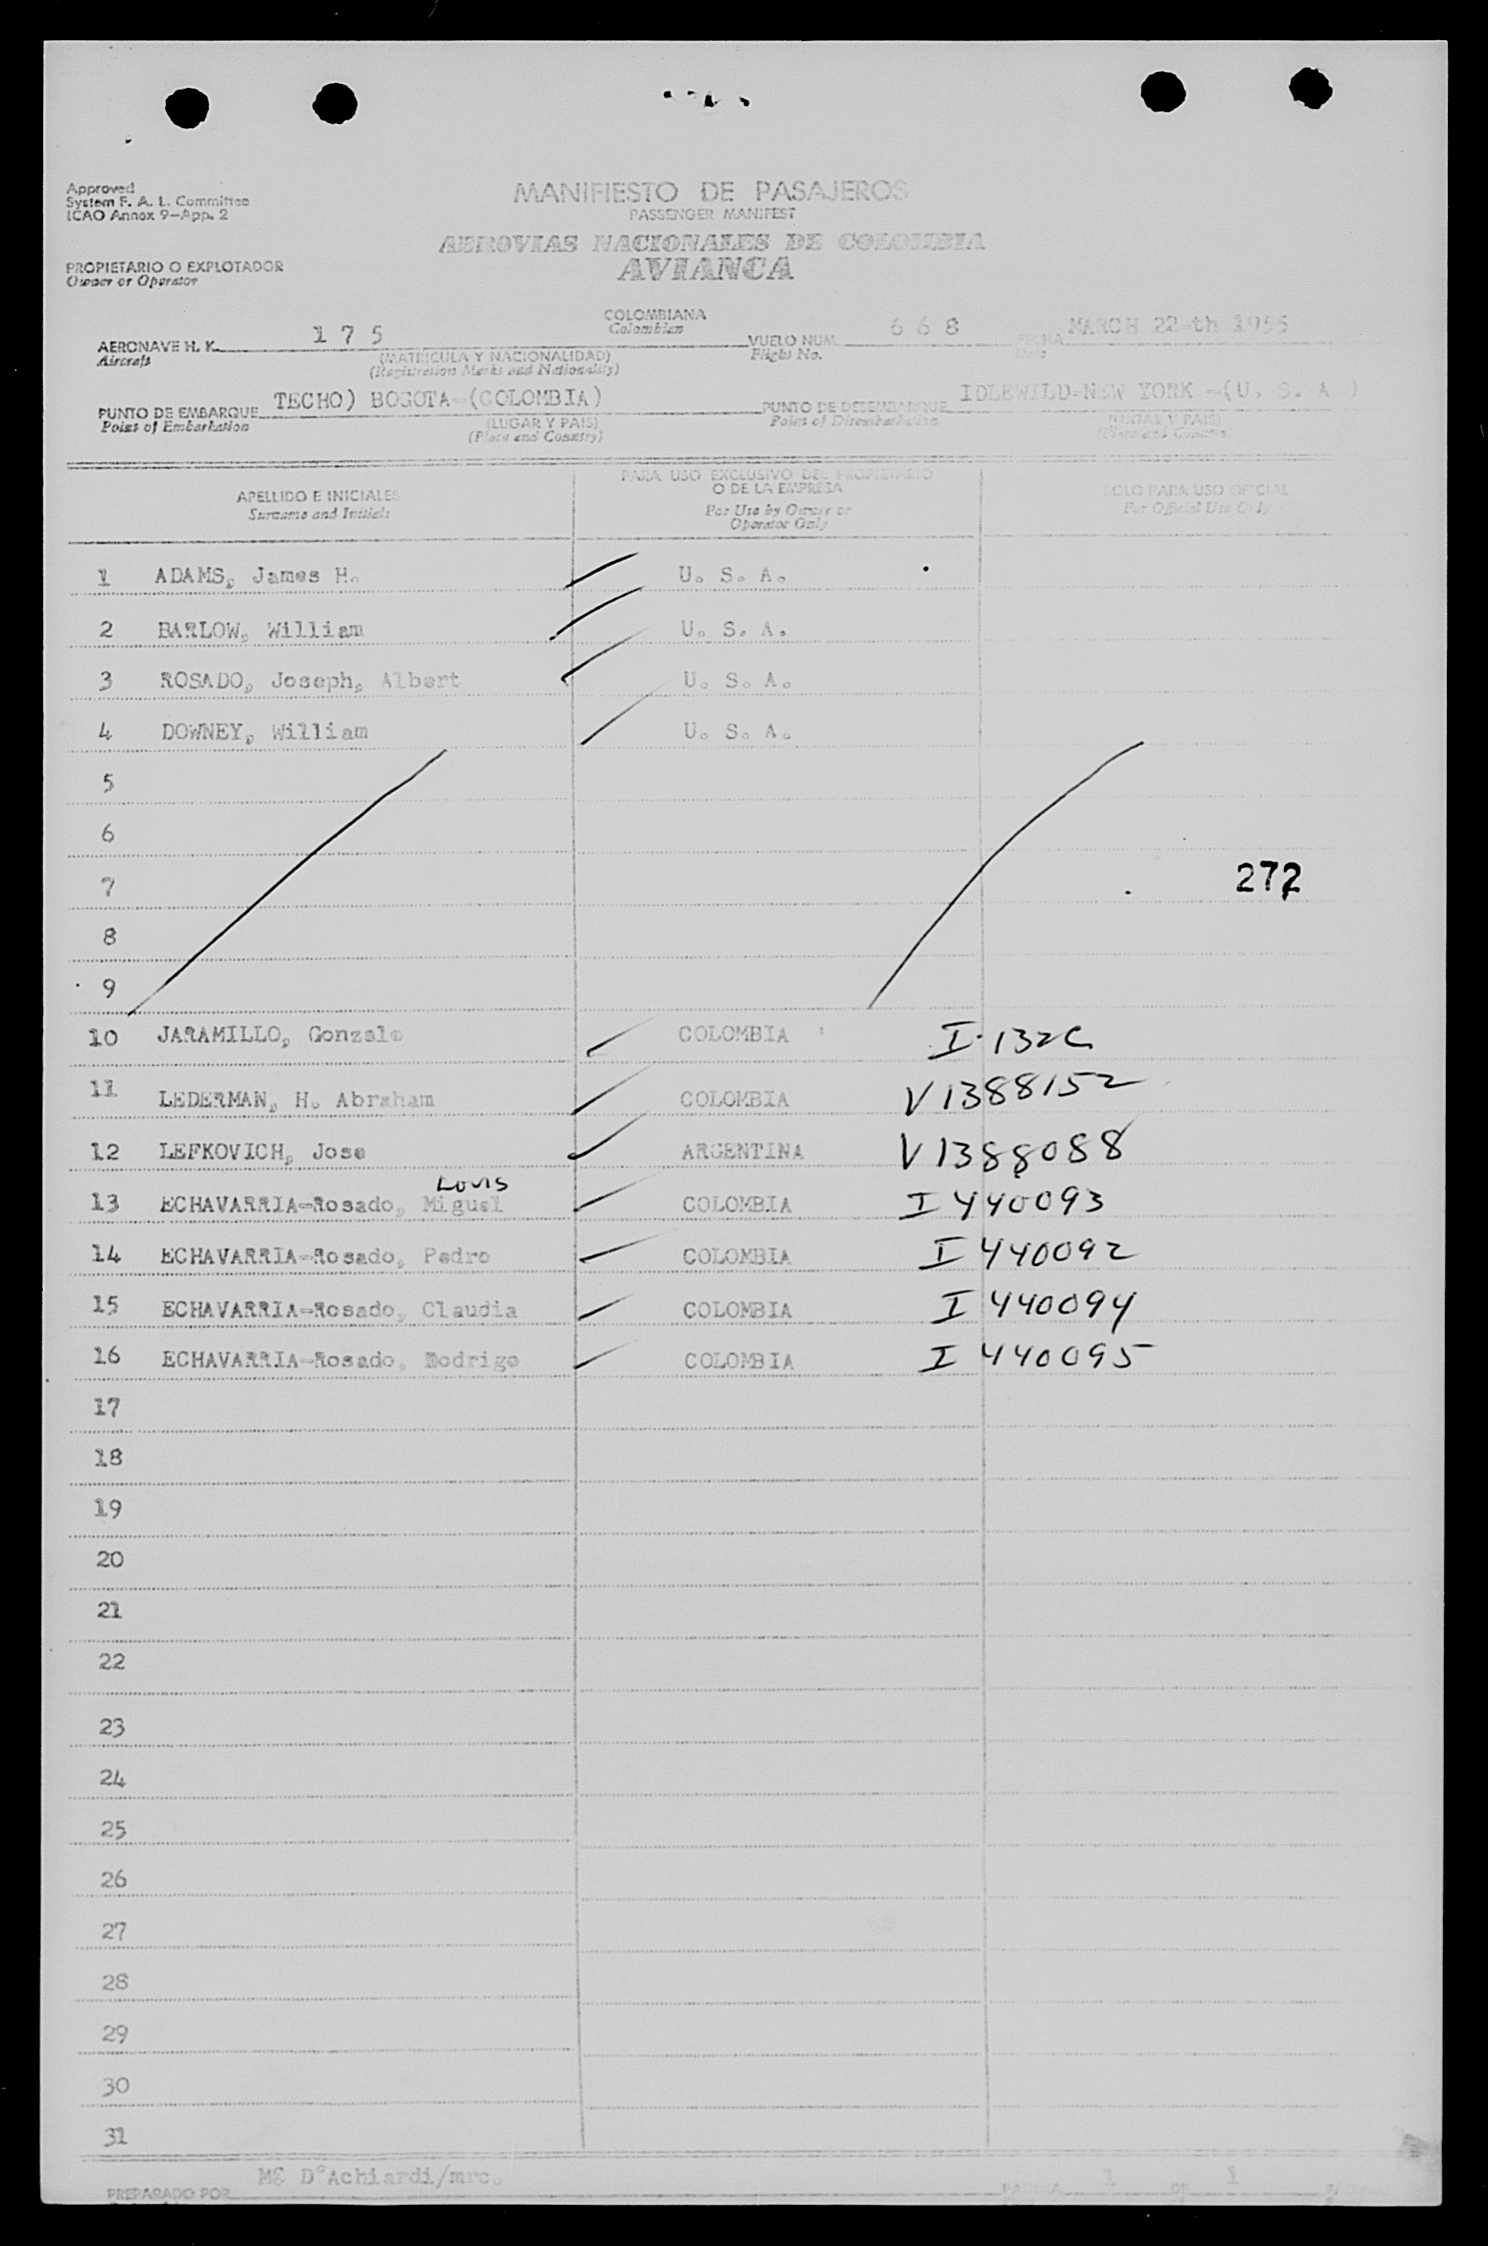 Approved
System F. A. L. Committee
ICAO Annex 9-App. 2
MANIFIESTO DE PASAJEROS
PASSENGER MANIFEST
AEROVIAS NACIONALES DE COLOMBIA
AVIANCA
PROPIETARIO O EXPLOTADOR
Owner or Operator
COLOMBIANA
Colombian
AERONAVE H. K. 175
Aircraft
(MATRICULA Y NACIONALIDAD)
(Registration Marks and Nationality)
VUELO NUM. 668
Flight No.
FECHA MARCH 22-th 1955
Date
PUNTO DE EMBARQUE TECHO) BOGOTA-(COLOMBIA)
Point of Embarkation
(LUGAR Y PAIS)
(Place and Country)
PUNTO DE DESEMBARQUE IDLEWILD-NEW YORK -(U. S. A )
Point of Disembarkation
(LUGAR Y PAIS)
(Place and Country)
APELLIDO E INICIALES
Surname and Initials
PARA USO EXCLUSIVO DEL PROPIETARIO
O DE LA EMPRESA
For Use by Owner or
Operator Only
SOLO PARA USO OFICIAL
For Official Use Only
1 ADAMS, James H. U. S. A.
2 BARLOW, William U. S. A.
3 ROSADO, Joseph, Albert U. S. A.
4 DOWNEY, William U. S. A.
5
6
7 272
8
9
10 JARAMILLO, Gonzalo COLOMBIA I-132C
11 LEDERMAN, H. Abraham COLOMBIA V1388152
12 LEFKOVICH, Jose ARGENTINA V1388088
Louis
13 ECHAVARRIA-Rosado, Miguel COLOMBIA I 440093
14 ECHAVARRIA-Rosado, Pedro COLOMBIA I 440092
15 ECHAVARRIA-Rosado, Claudia COLOMBIA I 440094
16 ECHAVARRIA-Rosado, Rodrigo COLOMBIA I 440095
17
18
19
20
21
22
23
24
25
26
27
28
29
30
31
PREPARADO POR ME D'Achiardi/mrc.
PAGINA 1 DE 1